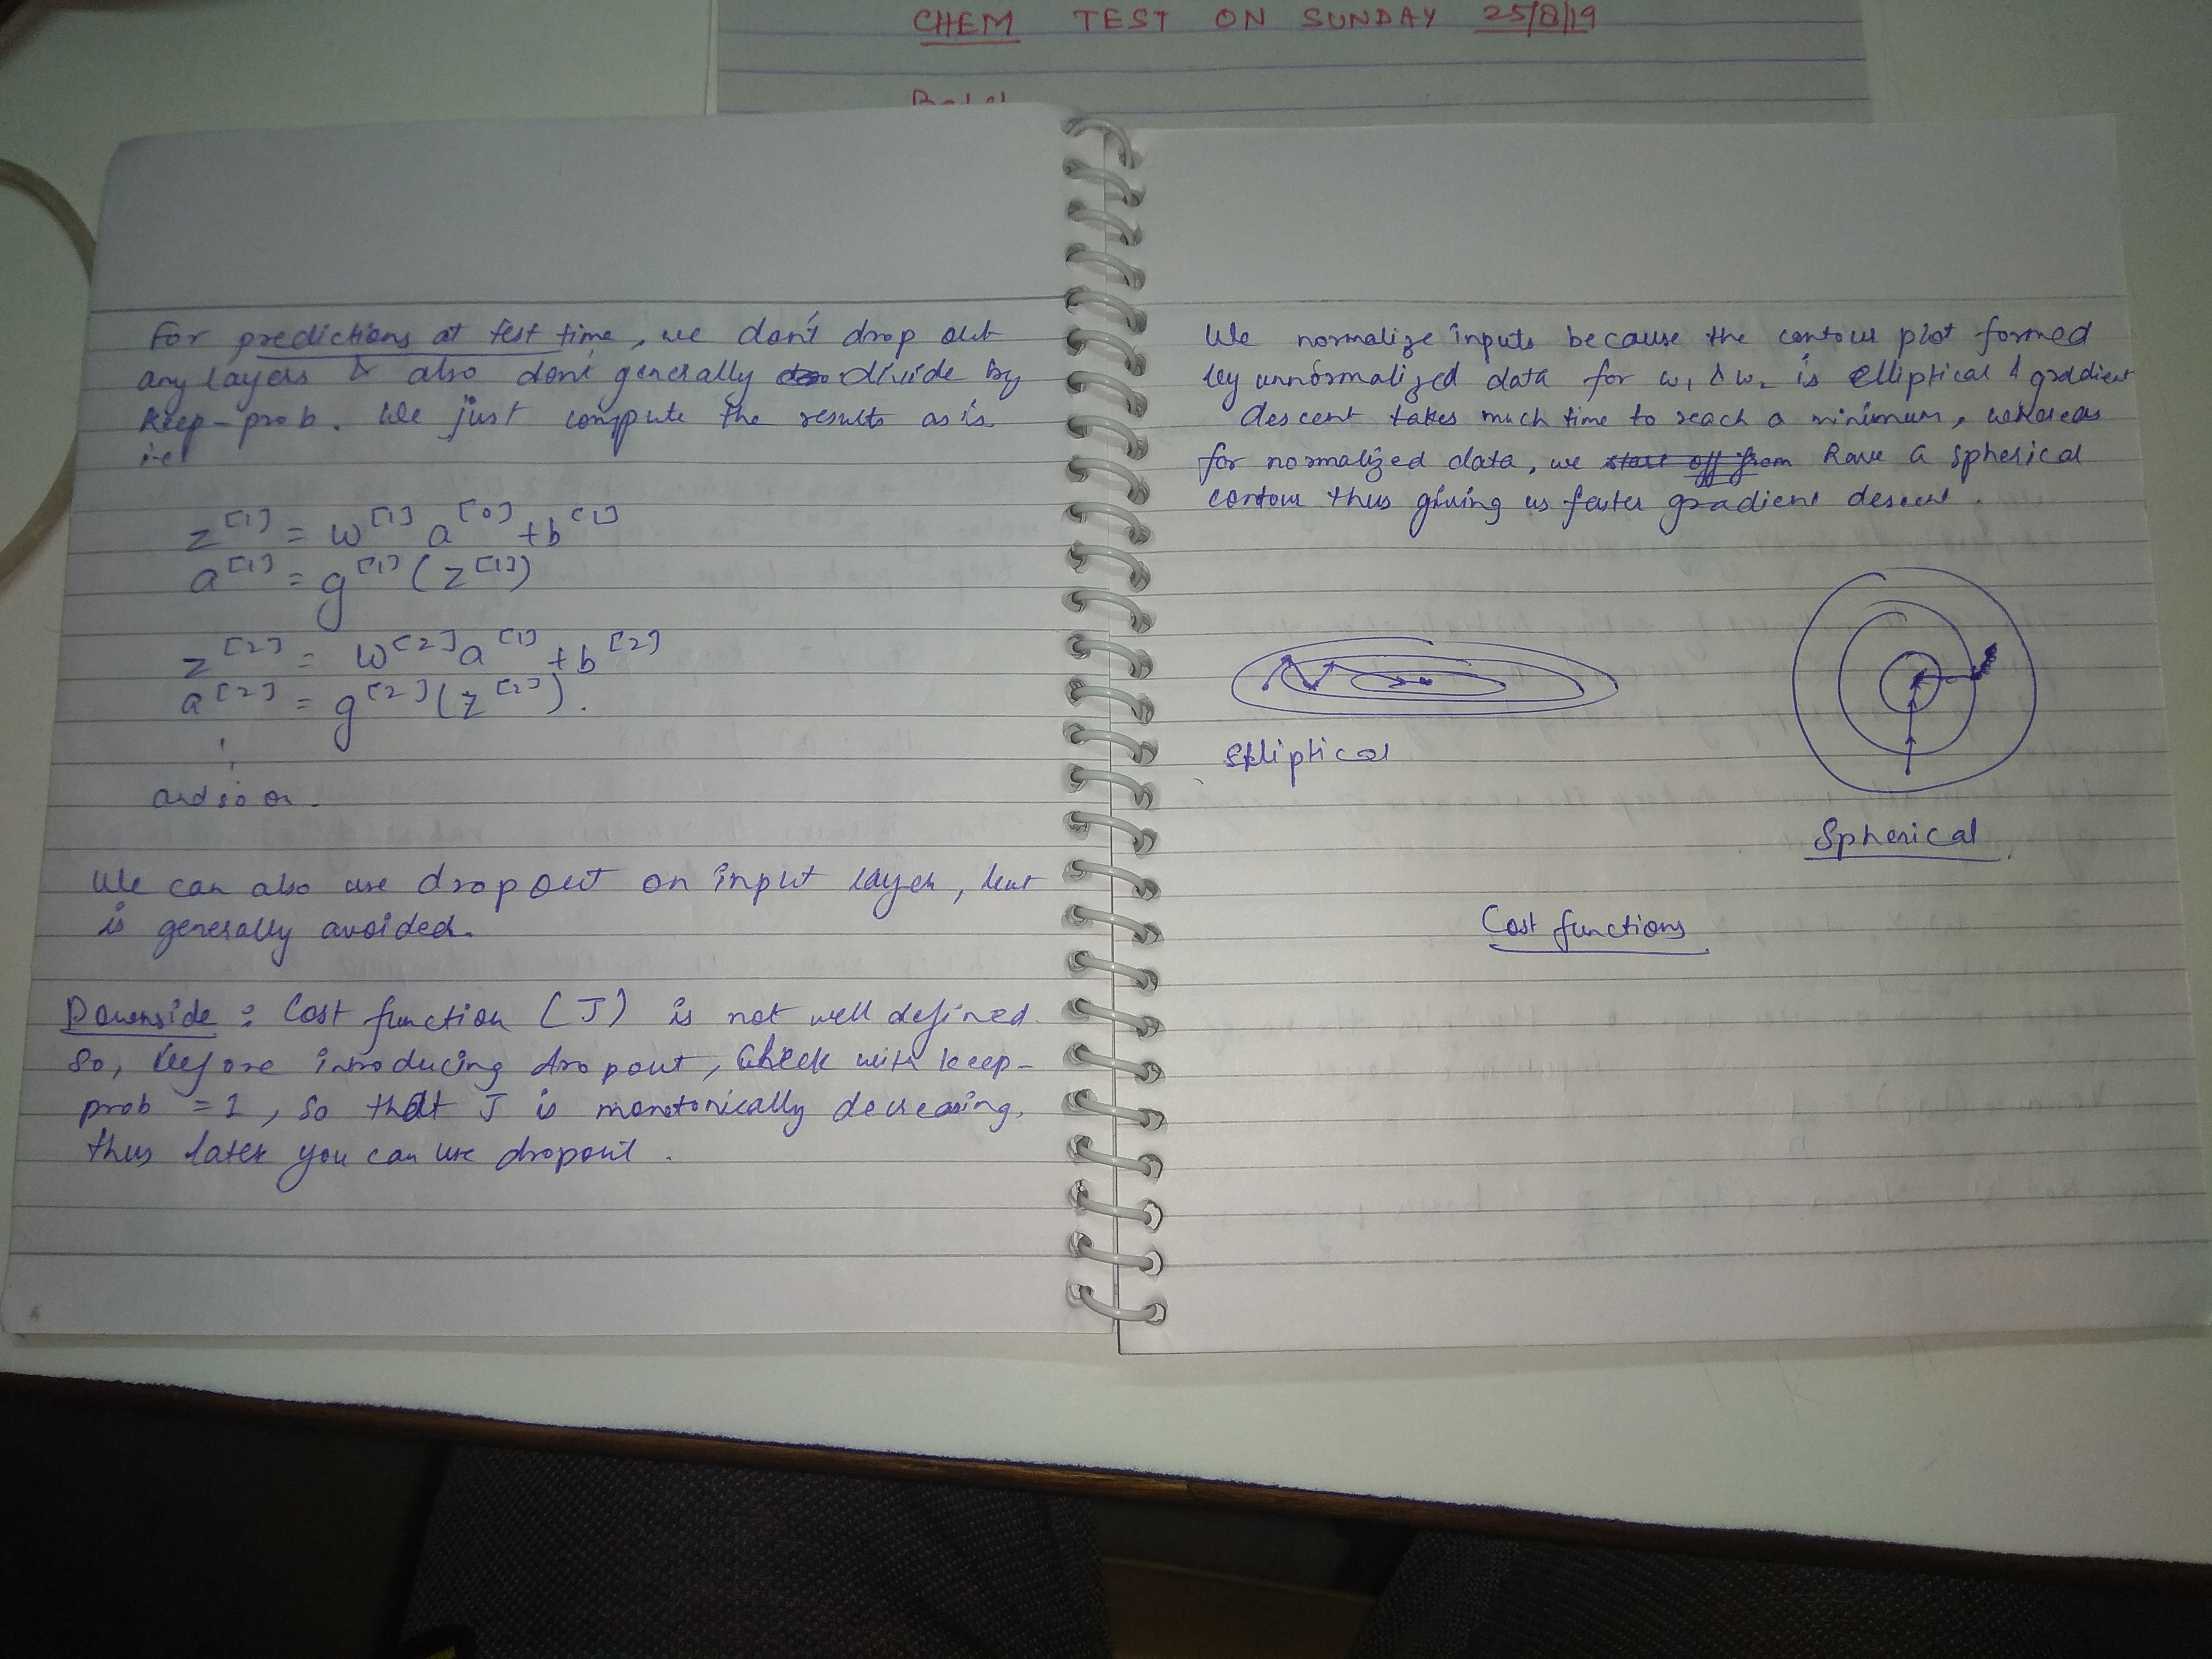 CHEM TEST ON SUNDAY 25/8/19
For predictions at test time, we don't drop out
any layers & also dont generally divide by
keep-prob. We just compute the results as is
i.e
z[1] = w[1] a[0] + b[1]
a[1] = g[1](z[1])
z[2] = w[2] a[1] + b[2]
a[2] = g[2](z[2]).
and so on.
We can also use drop out on input layer, but
is generally avoided.
Downside : Cost function (J) is not well defined.
So, before introducing dropout, check with keep-
prob = 1, so that J is monotonically decreasing,
thus later you can use dropout.
We normalize inputs because the contour plot formed
by unnormalized data for w1 & w2 is elliptical & gradient
descent takes much time to reach a minimum, whereas
for normalized data, we start off from have a spherical
contour thus giving us faster gradient descent.
Elliptical
Spherical
Cost functions